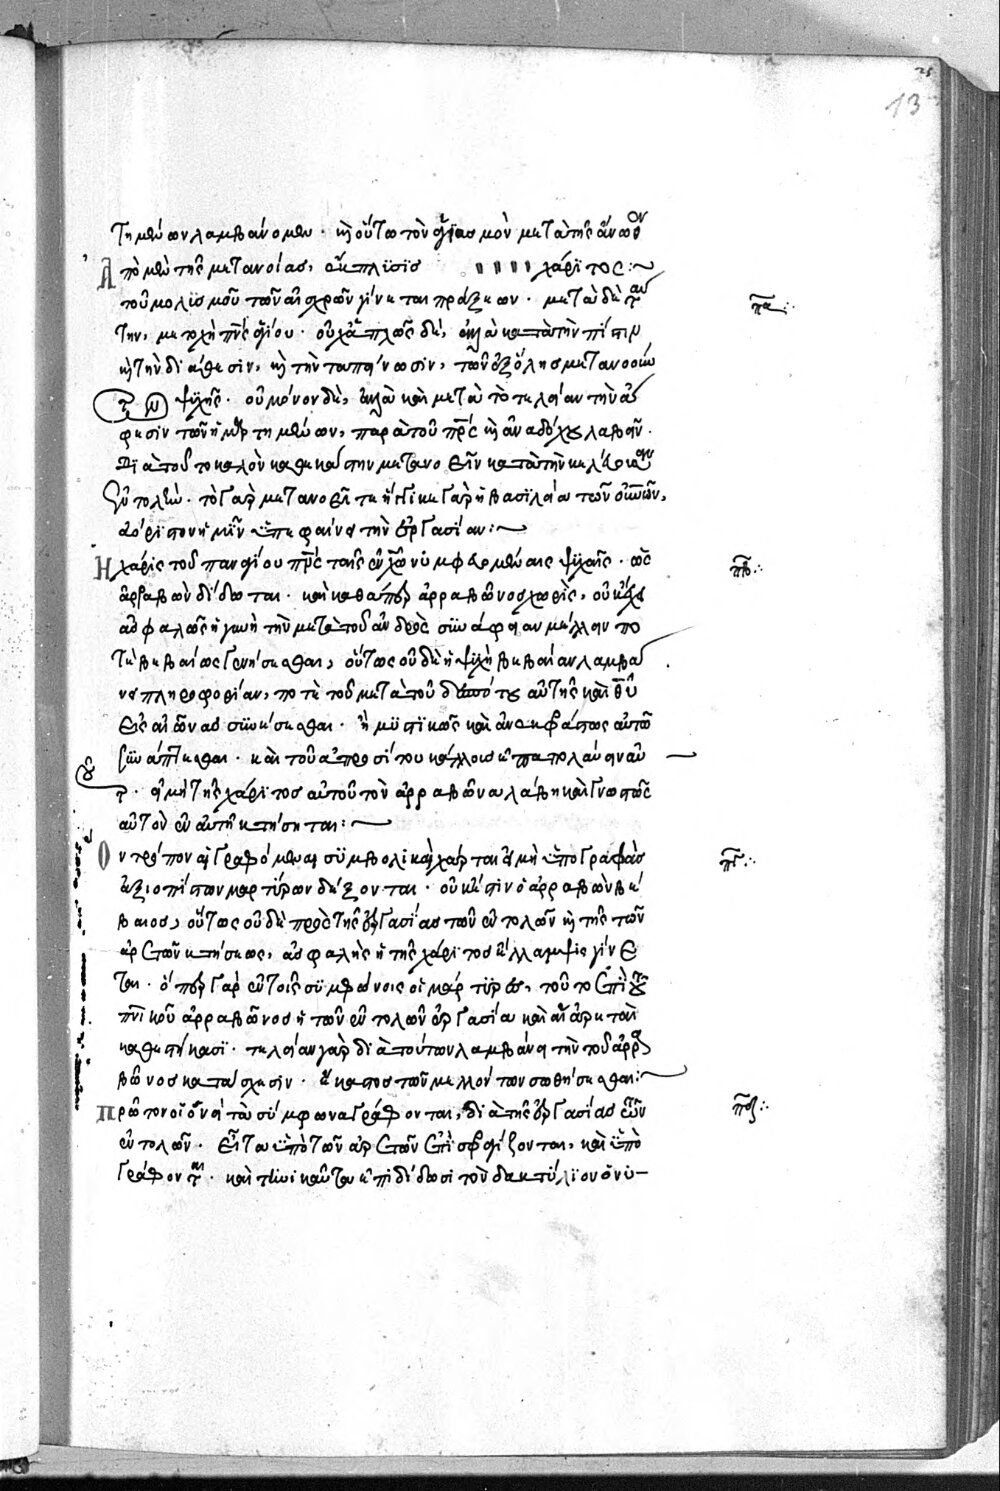 25
13
τημένων λαμβάνομεν · καὶ οὕτω τὸν ἁγιασμὸν μετὰ τῆς ἄνωθεν
χάριτος :~
Ἀπὸ μὲν τῆς μετανοίας, ἔκπλυσις
τοῦ μολυσμοῦ τῶν αἰσχρῶν γίνεται πράξεων · μετὰ δὲ ταύ
πα
την, μετοχὴ πνς ἁγίου · οὐχ ἁπλῶς δὲ, ἀλλὰ κατὰ τὴν πίστιν
καὶ τὴν διάθεσιν, καὶ τὴν ταπείνωσιν, τῶν ἐξ ὅλης μετανοούν
των ψυχῆς · οὐ μόνον δὲ, ἀλλὰ καὶ μετὰ τὸ τελείαν τὴν ἄ
φεσιν τῶν ἡμαρτημένων, παρὰ τοῦ πρς καὶ ἀναδόχου λαβεῖν ·
Διὰ τοῦτο καλὸν καθεκάστην μετανοεῖν κατὰ τὴν
ἐντολήν · τὸ γὰρ μετανοεῖτε ἤγγικε γὰρ ἡ βασιλεία τῶν οὐνῶν,
ἀόριστον ἡμῖν ὑπεφαίνε τὴν ἐργασίαν :~
Ἡ χάρις τοῦ παναγίου πνς ταῖς ἐν χῶ νύμφευομέναις ψυχαῖς · ὡς
πβ
ἀρραβὼν δίδοται · καὶ καθάπερ ἀρραβῶνος χωρὶς, οὐκ ἔχει
ἀσφαλῶς ἡ γυνὴ τὴν μετὰ τοῦ ἀνδρὸς συνάφειαν μέλλειν πο
τὲ βεβαίως γενήσεσθαι, οὕτως οὐδὲ ἡ ψυχὴ βεβαίαν λαμβά
νει πληροφορίαν, ποτὲ τοῦ μετὰ τοῦ δεσπότου αὐτῆς καὶ θυ
εἰς αἰῶνας συνέσεσθαι · ἢ μυστικῶς καὶ ἀνεκφράστως αὐτῶ
συνάπτεσθαι · καὶ τοῦ ἀπροσίτου κάλλους ἐπαπολαύειν αὐ
τοῦ · εἰ μὴ τῆς χάριτος αὐτοῦ τὸν ἀρραβῶνα λάβη καὶ γνωστῶς
αὐτὸν ἐν αὐτῆ κτήσηται :~
Ὃν τρόπον αἱ γραφόμεναι συμβολικαὶ χάρται εἰ μὴ ὑπογραφὰς
πγ
ἀξιοπίστων μαρτύρων δέξονται · οὐκ ἔστιν ὁ ἀρραβὼν βέ
βαιος, οὕτως οὐδὲ πρὸ τῆς ἐργασίας τῶν ἐντολῶν καὶ τῆς τῶν
ἀρετῶν κτήσεως, ἀσφαλὴς ἡ τῆς χάριτος ἔλλαμψις γίνε
ται · ὅπερ γὰρ ἐν τοῖς συμφώνοις οἱ μάρτυρες, τοῦτο ἐπὶ τοῦ
πνικοῦ ἀρραβῶνος ἡ τῶν ἐντολῶν ἐργασία καὶ αἱ ἀρεταὶ
καθεστήκασι · τελείαν γὰρ διὰ τούτων λαμβάνει τὴν τοῦ ἀρρα
βῶνος κατάσχεσιν · ἕκαστος τῶν μελλόντων σωθήσεσθαι :~
Πρῶτον οἱονεὶ τὰ σύμφωνα γράφονται, διὰ τῆς ἐργασίας τῶν
πδ
ἐντολῶν · εἶτα ὑπὸ τῶν ἀρετῶν ἐπισφραγίζονται, καὶ ὑπο
γράφονται · καὶ τηνικαῦτα ἐπιδίδωσι τὸν δακτύλιον ὁ νυ-